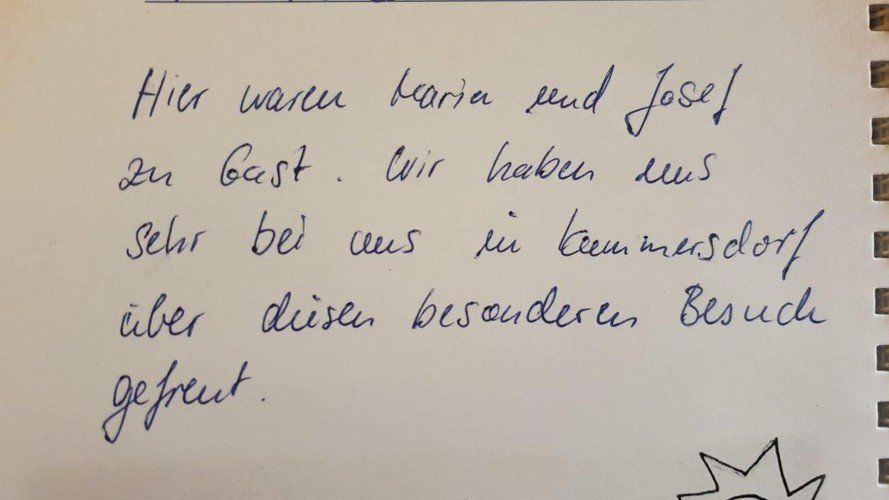 Hier waren Maria und Josef
zu Gast. Wir haben uns
sehr bei uns in Kummersdorf
über diesen besonderen Besuch
gefreut.